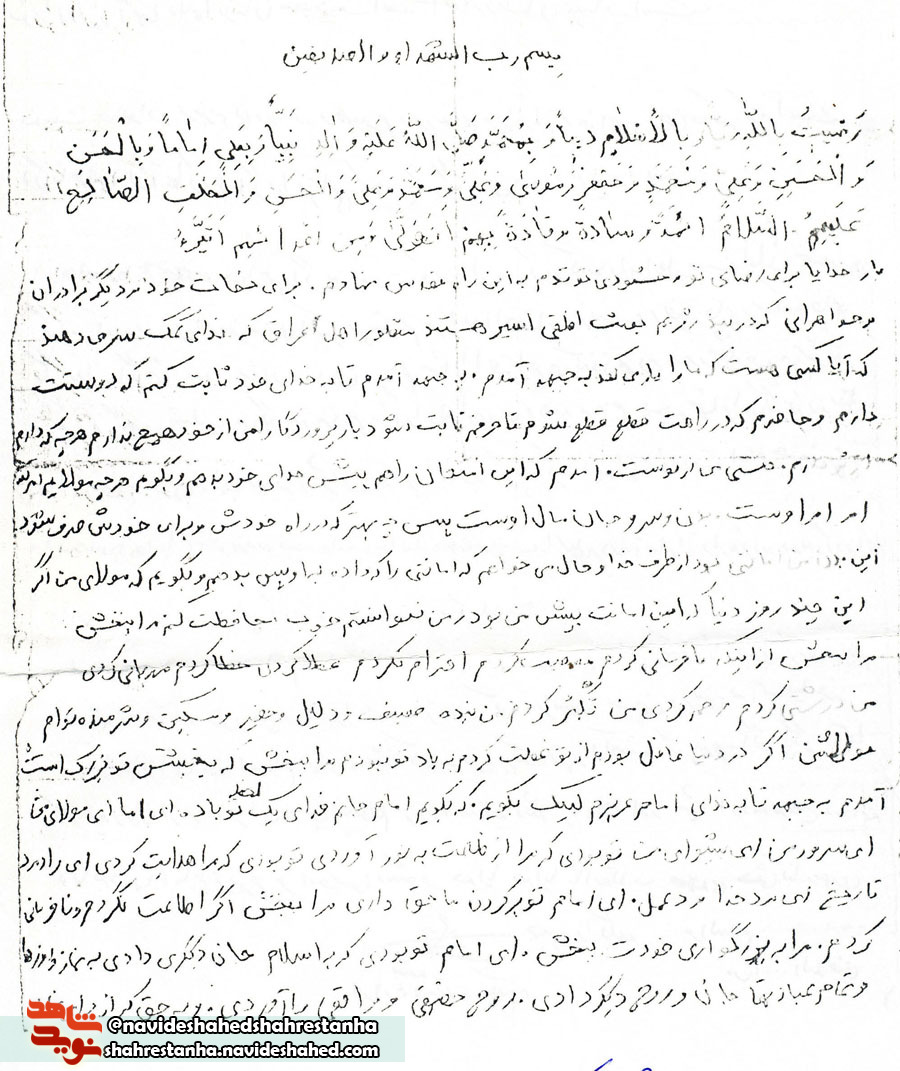 بسم رب الشهداء و الصدیقین
رَضیتُ بِاللّهِ رَبّاً و بِالْأِسْلامِ دیناً وَ بِمُحَمَّدٍ صَلَّی اللّهُ عَلَیْهِ وَ آلِهِ نَبِیّاً وَ بِعَلیٍ اِماماً وَ بِالْحَسَنِ
وَ الْحُسَیْنِ وَ عَلِیٍ وَ مُحَمَّدٍ وَ جَعْفَرٍ وَ مُوسیٰ وَ عَلیٍّ وَ مُحَمَّدٍ وَ عَلِیٍ وَ الْحَسَنِ وَ الْخَلَفِ الصّالِحِ
عَلَیْهِمُ السَّلامُ ائمَّةً و سادَةً و قادَةً بِهِمْ اَتَوَلّیٰ وَ مِن اعدائهم اَتَبَرَّءُ
بار خدایا برای رضای تو و خشنودی تو قدم به این راه مقدس نهادم . برای نجات خود و دیگر برادران
و خواهرانی که در بند رژیم بعث افلقی اسیر هستند منظور اهل عراق که ندای کمک سر می دهند
که آیا کسی هست که ما را یاری کند به جبهه آمدم . به جبهه آمدم تا به خدای خود ثابت کنم که دوستت
دارم و حاضرم که در راهت قطع قطع شوم تا حرفم ثابت شود بار پروردگارا من از خود هیچ ندارم هر چه که دارم
هستی من از توست . آمدم که این امتحان را هم پیش خدای خود بدهم و بگویم هر چه مولایم امر کند
امر امر اوست بدن و سر و جان مال اوست پس چه بهتر که در راه خودش و برای خودش صرف شود
این بدن من امانتی بود از طرف خدا و حال می خواهم که امانتی را که داده به او پس بدهم و بگویم که مولای من اگر
این چند روز دنیا که این امانت پیش من بود و من نتوانستم خوب محافظت کنم مرا ببخش
مرا ببخش از اینکه نافرمانی کردم احترام نکردم عطا کردی خطا کردم مهربانی کردی
من درشتی کردم رحم کردی من تکبّر کردم من بنده ضعیف و ذلیل و حقیر و مسکین و شرمنده توام
مولای من اگر در دنیا غافل بودم از تو غفلت کردم به یاد تو نبودم مرا ببخش که بخشش تو بزرگ است
آمدم به جبهه تا به ندای امام عزیزم لبیک بگویم . که بگویم امام جانم فدای یک لحظه تو باد . ای امام ای مولای من
ای سرور من ای پیشوای من تو بودی که مرا از ظلمت به نور آوردی تو بودی که مرا هدایت کردی ای راد مرد
تاریخ ای مرد خدا مرد عمل . ای امام تو بر گردن ما حق داری مرا ببخش اگر اطاعت نکردم و نافرمانی
کردم . مرا به بزرگواری خودت ببخش . ای امام تو بودی که به اسلام جان دیگری دادی به نماز و روزه ها
و تمام عبادتها جان و روح دیگر دادی . روح حقیقی و واقعی را آوردی . و به حق که از
شاهد نوید
@navideshahedshahrestanha
shahrestanha.navideshahed.com